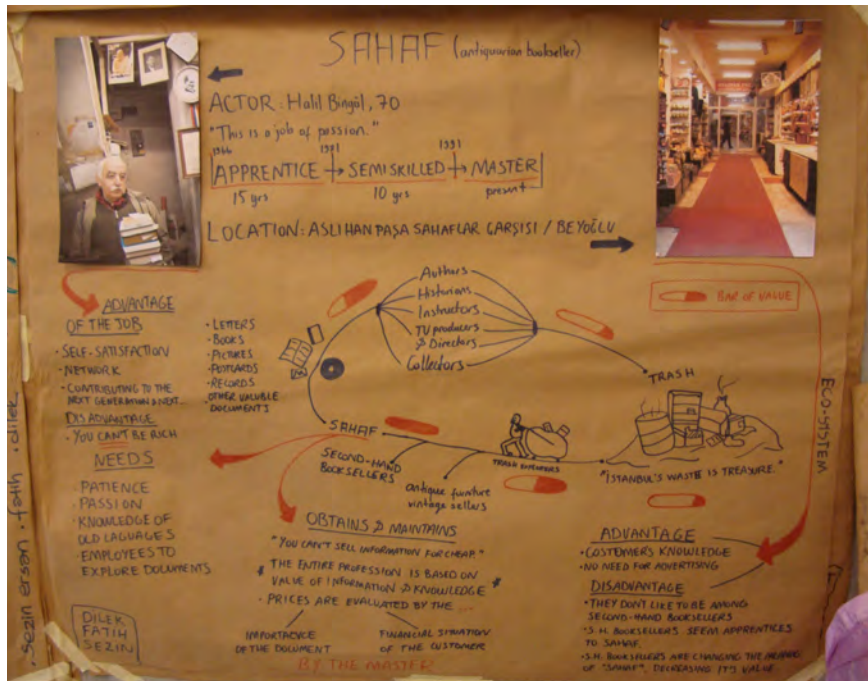 SAHAF (antiquarian bookseller)
ACTOR: Halil Bingöl, 70
"This is a job of passion."
1966 1981 1991
APPRENTICE → SEMISKILLED → MASTER
15 yrs 10 yrs present
LOCATION: ASLIHAN PAŞA SAHAFLAR ÇARŞISI / BEYOĞLU
ADVANTAGE
OF THE JOB
· SELF-SATISFACTION
· NETWORK
· CONTRIBUTING TO THE
NEXT GENERATION & NEXT...
DISADVANTAGE
· YOU CAN'T BE RICH
NEEDS
· PATIENCE
· PASSION
· KNOWLEDGE OF
OLD LAGUAGES
· EMPLOYEES TO
EXPLORE DOCUMENTS
· LETTERS
· BOOKS
· PICTURES
· POSTCARDS
· RECORDS
· OTHER VALUABLE
DOCUMENTS
Authors
Historians
Instructors
TV producers
& Directors
Collectors
BAR OF VALUE
TRASH
ECO-SYSTEM
SAHAF
SECOND-HAND
BOOKSELLERS
antique furniture
vintage sellers
TRASH EXPLORERS
"ISTANBUL'S WASTE IS TREASURE."
OBTAINS & MAINTAINS
"YOU CAN'T SELL INFORMATION FOR CHEAP."
* THE ENTIRE PROFESSION IS BASED ON
VALUE OF INFORMATION & KNOWLEDGE *
· PRICES ARE EVALUATED BY THE ...
IMPORTANCE
OF THE DOCUMENT
FINANCIAL SITUATION
OF THE CUSTOMER
BY THE MASTER
ADVANTAGE
· COSTUMER'S KNOWLEDGE
· NO NEED FOR ADVERTISING
DISADVANTAGE
· THEY DON'T LIKE TO BE AMONG
SECOND-HAND BOOKSELLERS
· S.H. BOOKSELLERS SEEM APPRENTICES
TO SAHAF.
· S.H. BOOKSELLERS ARE CHANGING THE MEANING
OF "SAHAF", DECREASING IT'S VALUE.
DILEK
FATIH
SEZIN
. sezin ersan . fatih . dilek